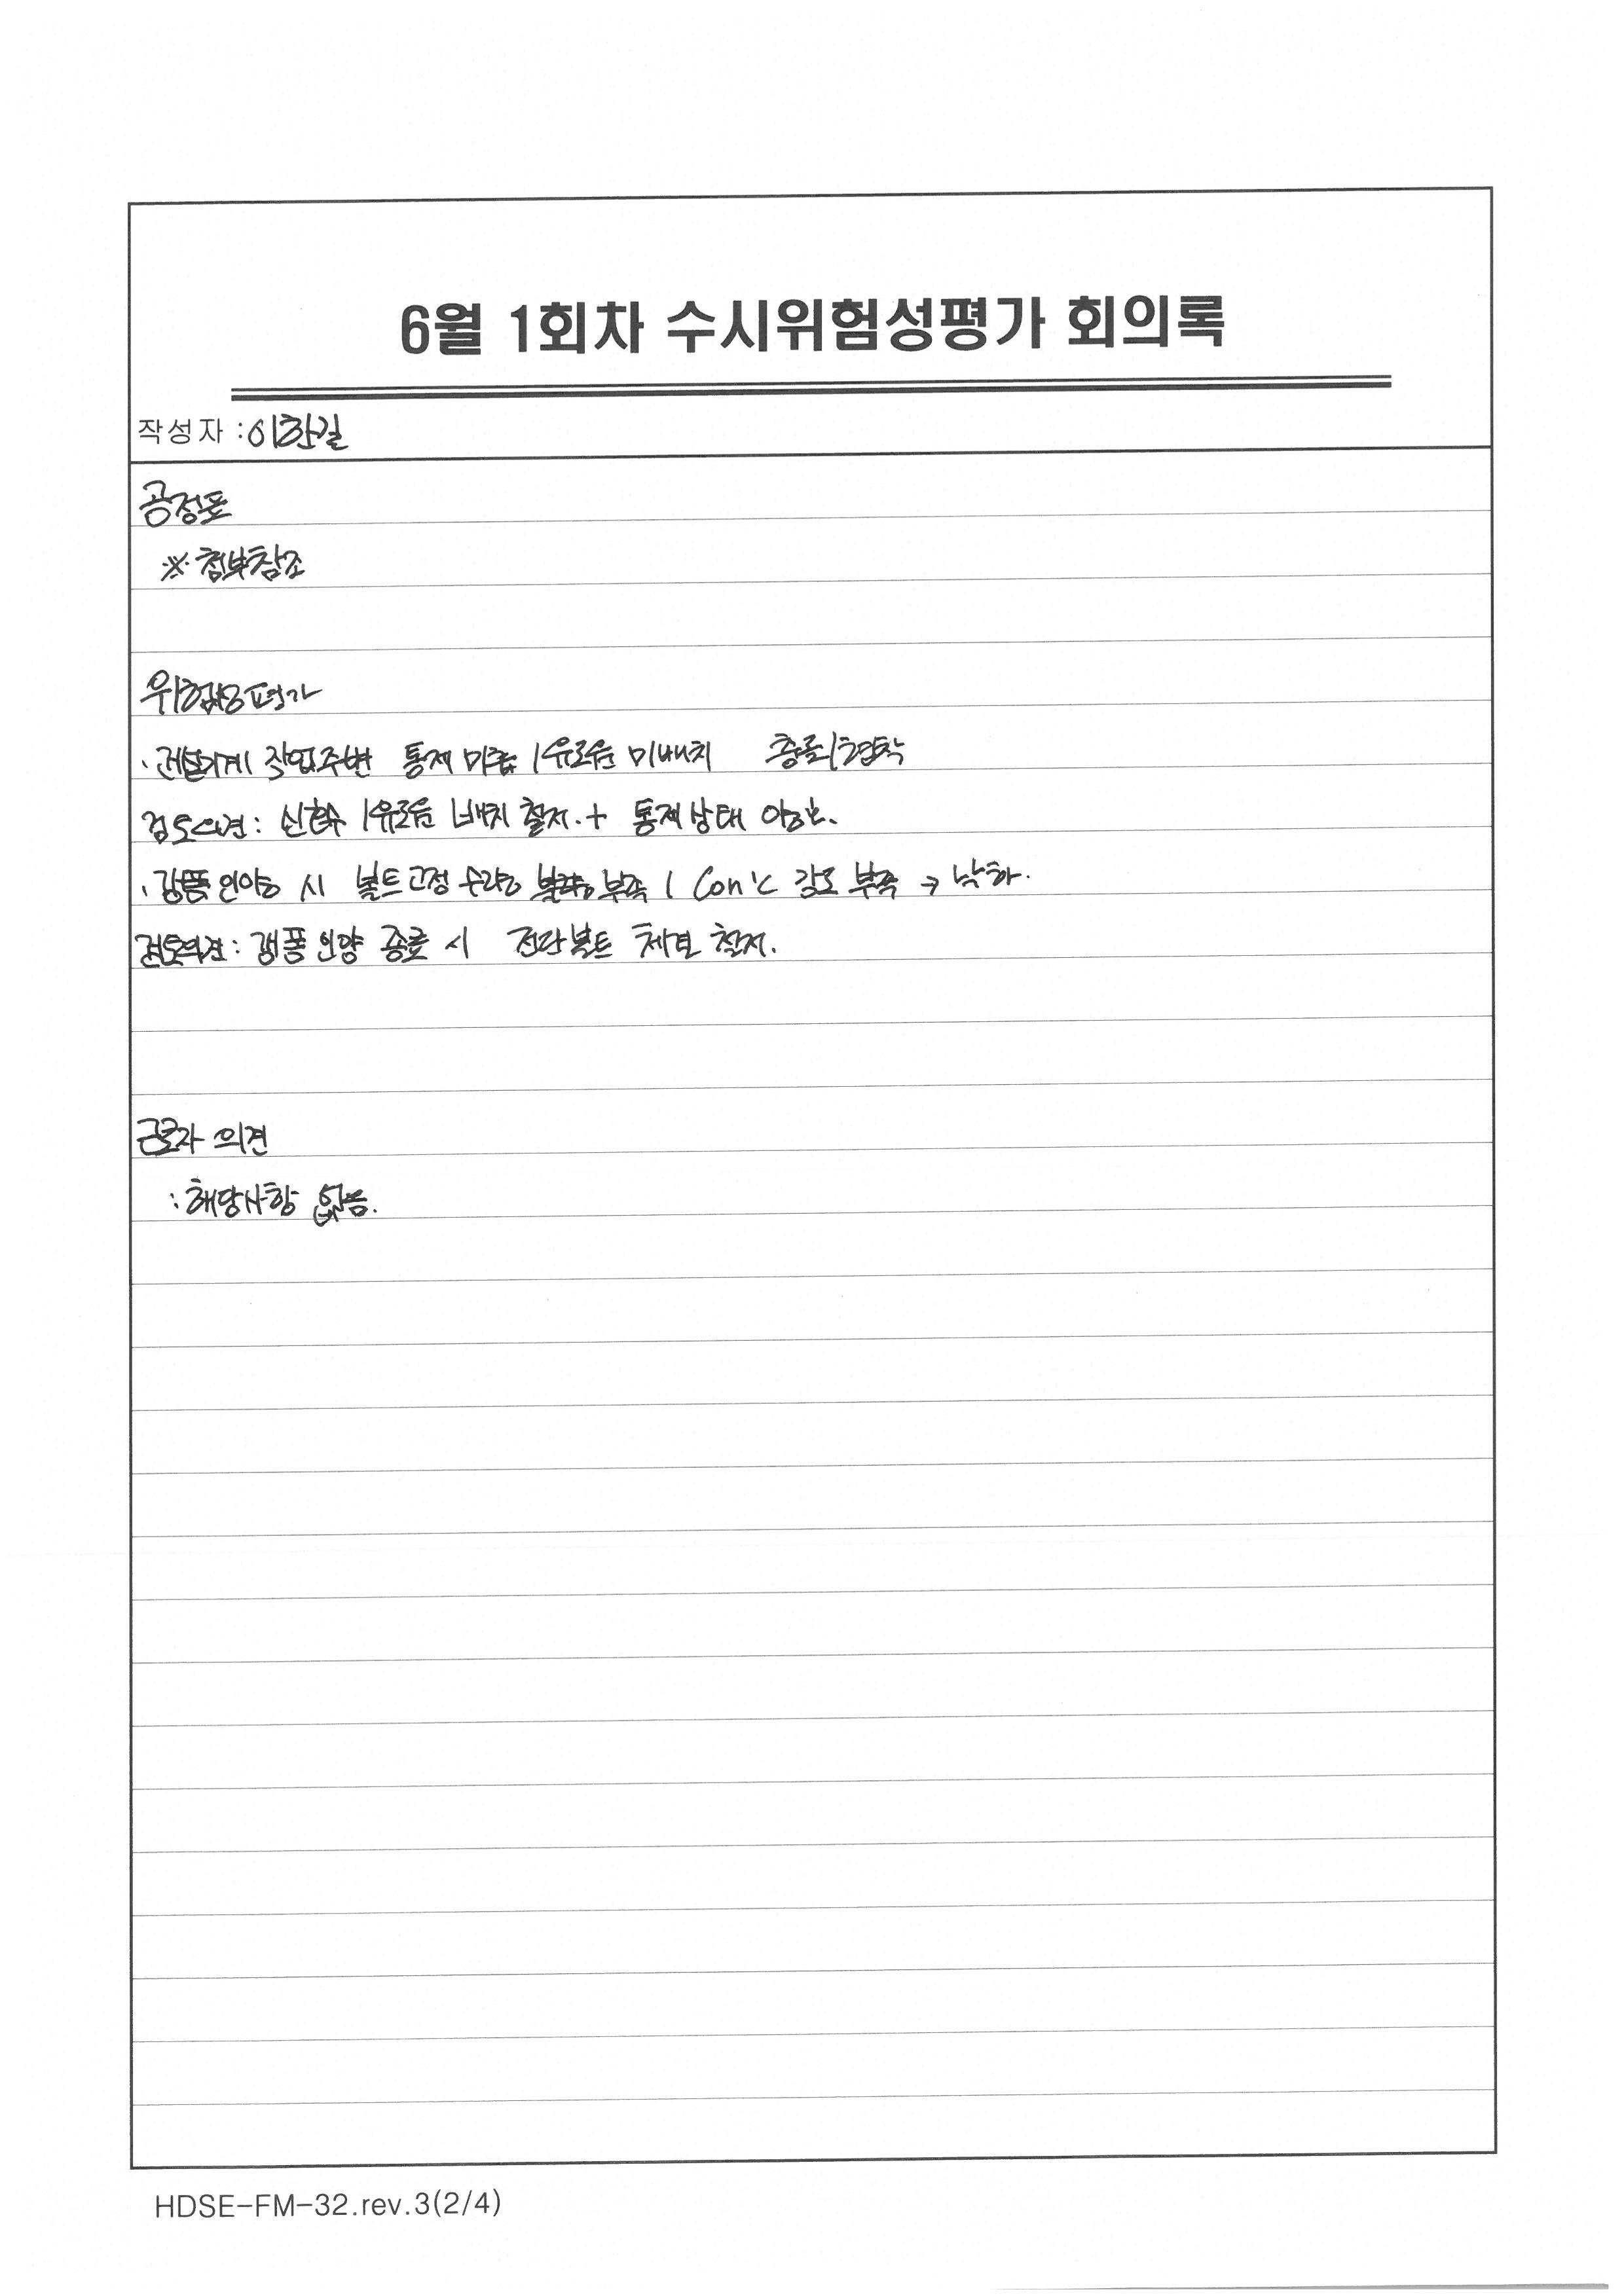 6월 1회차 수시위험성평가 회의록
작성자 : 이한길
공정표
※ 첨부참조
위험성평가
· 건설기계 작업주변 통제 미흡 / 유도원 미배치 충돌/협착
검토의견 : 신호수 / 유도원 배치 철저. + 통제상태 양호.
· 갱폼 인양 시 볼트고정 수량 부족 / Con'c 강도 부족 → 낙하.
검토의견 : 갱폼 인양 종료 시 전단볼트 체결 철저.
근로자 의견
: 해당사항 없음.
HDSE-FM-32.rev.3(2/4)